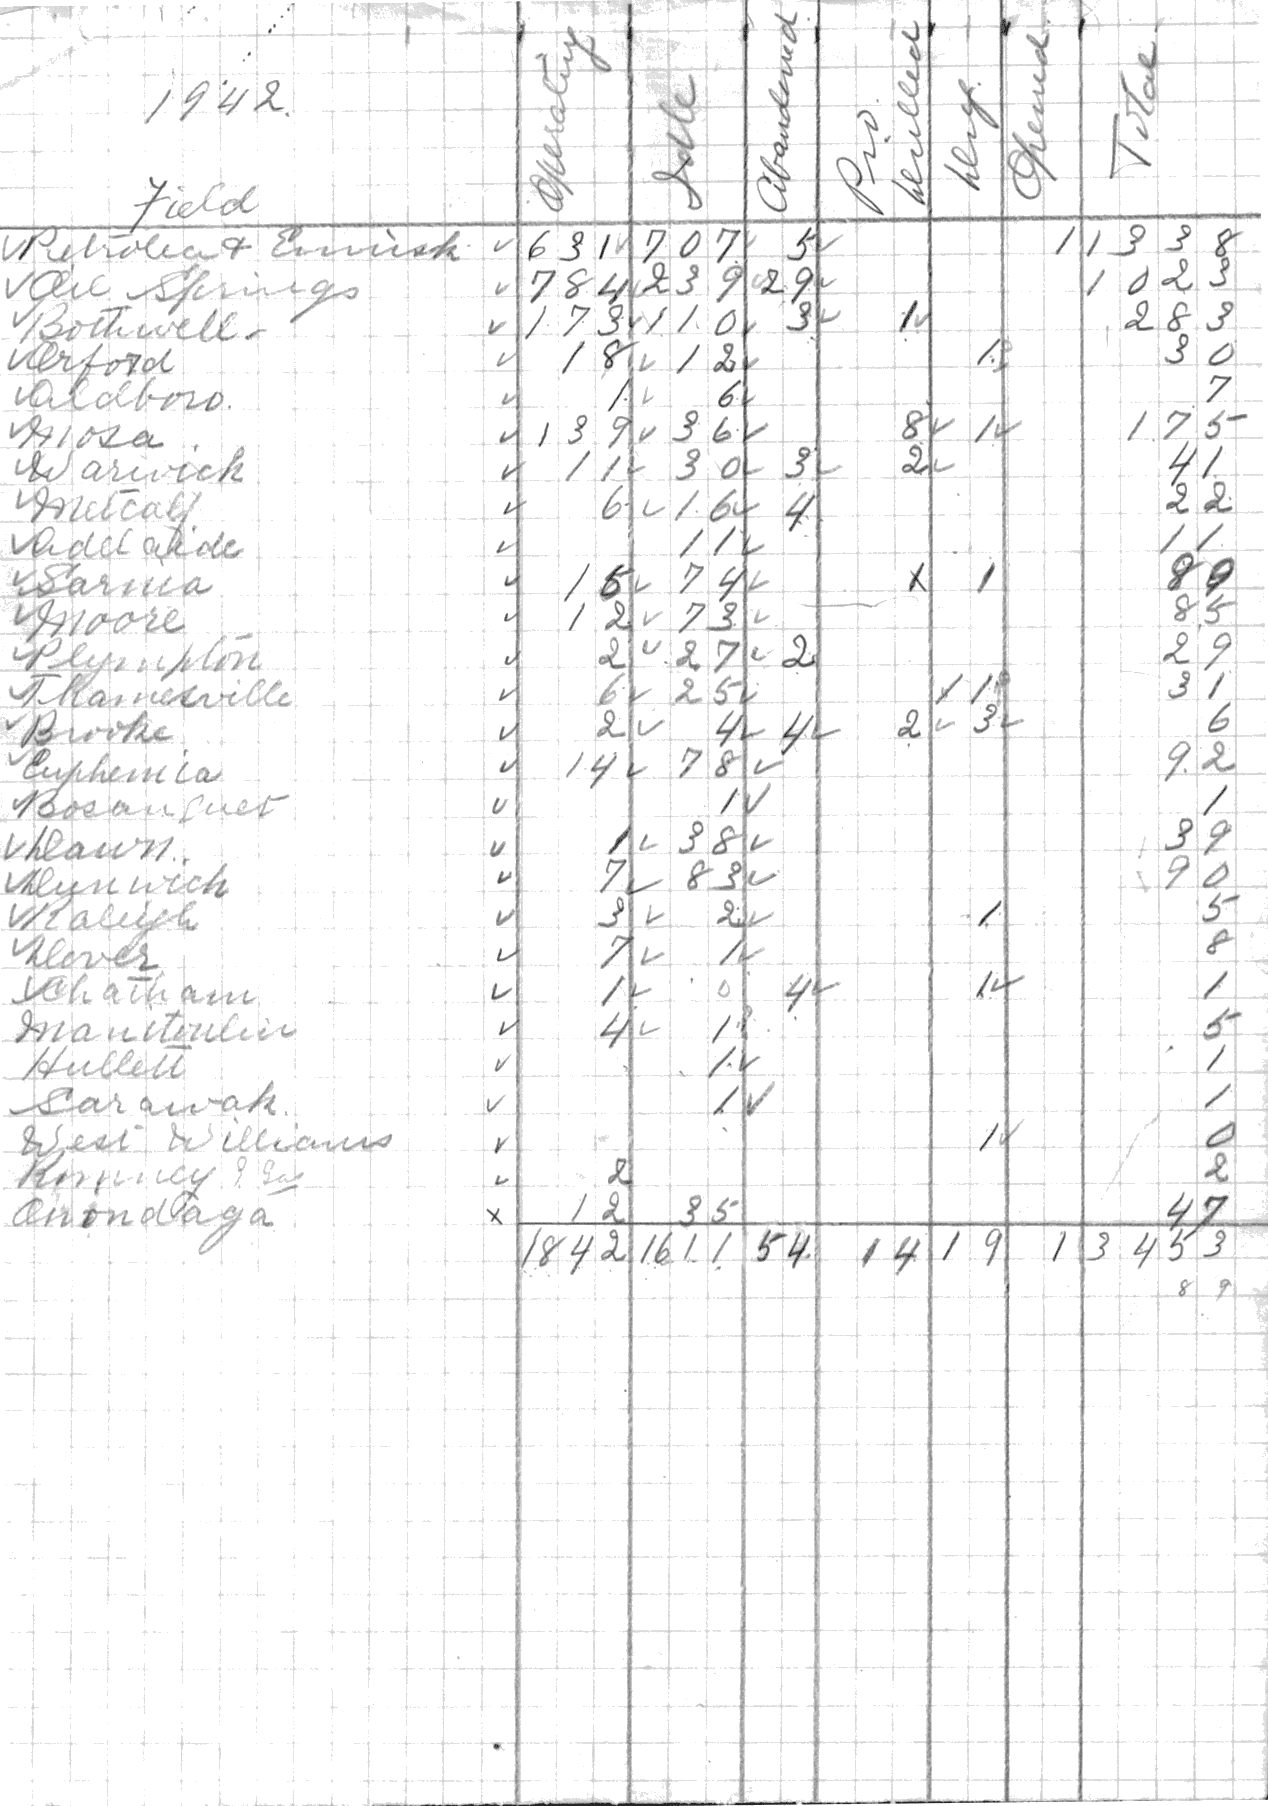 1942.
Field Operating Idle Abandoned Pro. Drilled Dry. Opened Total
✓Petrolea & Enniskn ✓ 631✓ 707 5✓ 1 1338
✓Oil Springs ✓ 784✓ 239✓ 29✓ 1023
✓Bothwell ✓ 173✓ 110✓ 3✓ 1✓ 283
✓Orford ✓ 18✓ 12✓ 1 30
✓Aldboro. ✓ 1✓ 6✓ 7
✓Mosa ✓ 139✓ 36✓ 8✓ 1✓ 175
✓Warwick ✓ 11✓ 30✓ 3✓ 2✓ 41
✓Metcalf ✓ 6✓ 16✓ 4 22
✓Adelaide ✓ 11✓ 11
✓Sarnia ✓ 15✓ 74✓ x 1 89
✓Moore ✓ 12✓ 73✓ 85
✓Plympton ✓ 2✓ 27✓ 2 29
✓Thamesville ✓ 6✓ 25✓ x 1 31
✓Brooke ✓ 2✓ 4✓ 4✓ 2✓ 3✓ 6
✓Euphemia ✓ 14✓ 78✓ 92
✓Bosanquet ✓ 1✓ 1
✓Dawn. ✓ 1✓ 38✓ 39
✓Dunwich ✓ 7✓ 83✓ 90
✓Raleigh ✓ 3✓ 2✓ 1 5
✓Dover ✓ 7✓ 1✓ 8
✓Chatham ✓ 1✓ 0 4✓ 1✓ 1
Manitoulin ✓ 4✓ 1 5
Hullett ✓ 1✓ 1
Sarawak. ✓ 1✓ 1
West Williams ✓ 1✓ 0
Romney ✓ 2 2
Onondaga x 12 35 47
1842 1611 54 14 19 1 3453
89